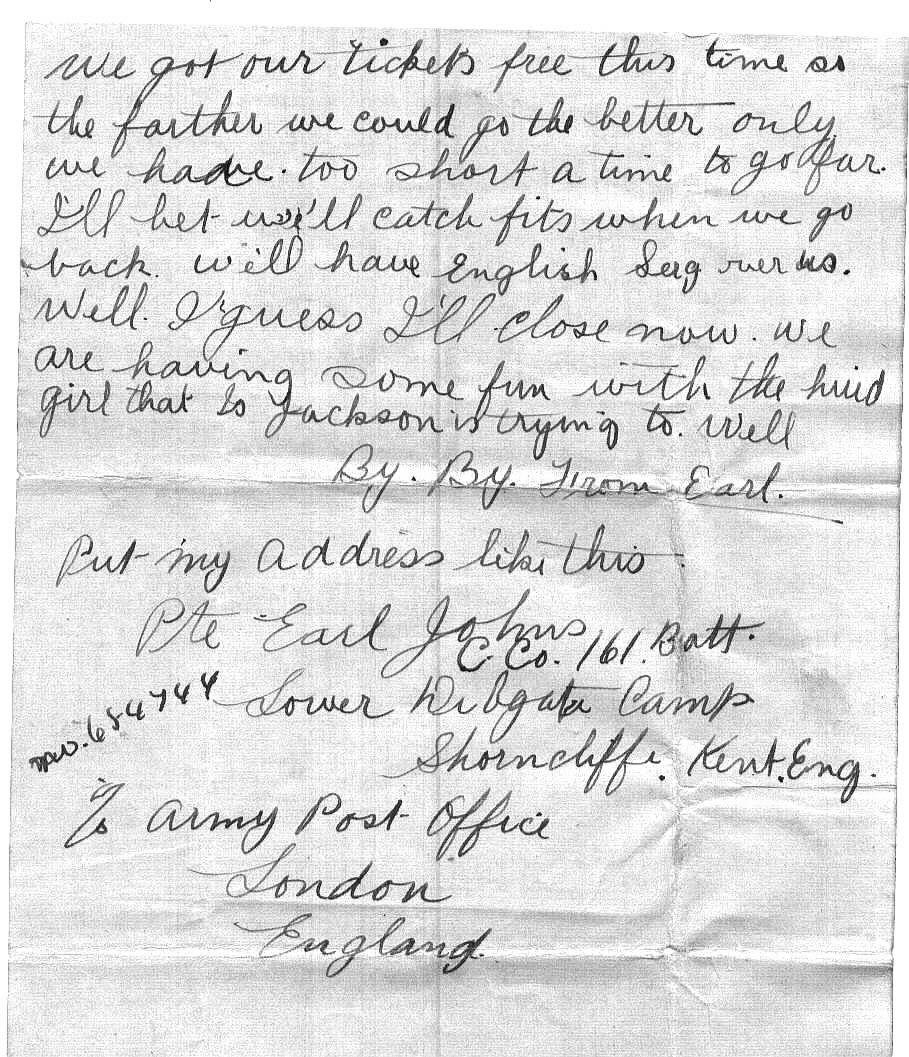 We got our tickets free this time so
the farther we could go the better only
we have. too short a time to go far.
I'll bet we'll catch fits when we go
back. we'll have English Serg over us.
Well. I guess I'll close now. we
are having some fun with the hired
girl that is Jackson is trying to. Well
By. By. From Earl.
Put my address like this
Pte Earl Johns
C. Co. 161. Batt.
no. 654744
Lower Dibgate Camp
Shorncliffe. Kent. Eng.
c/o Army Post Office
London
England.